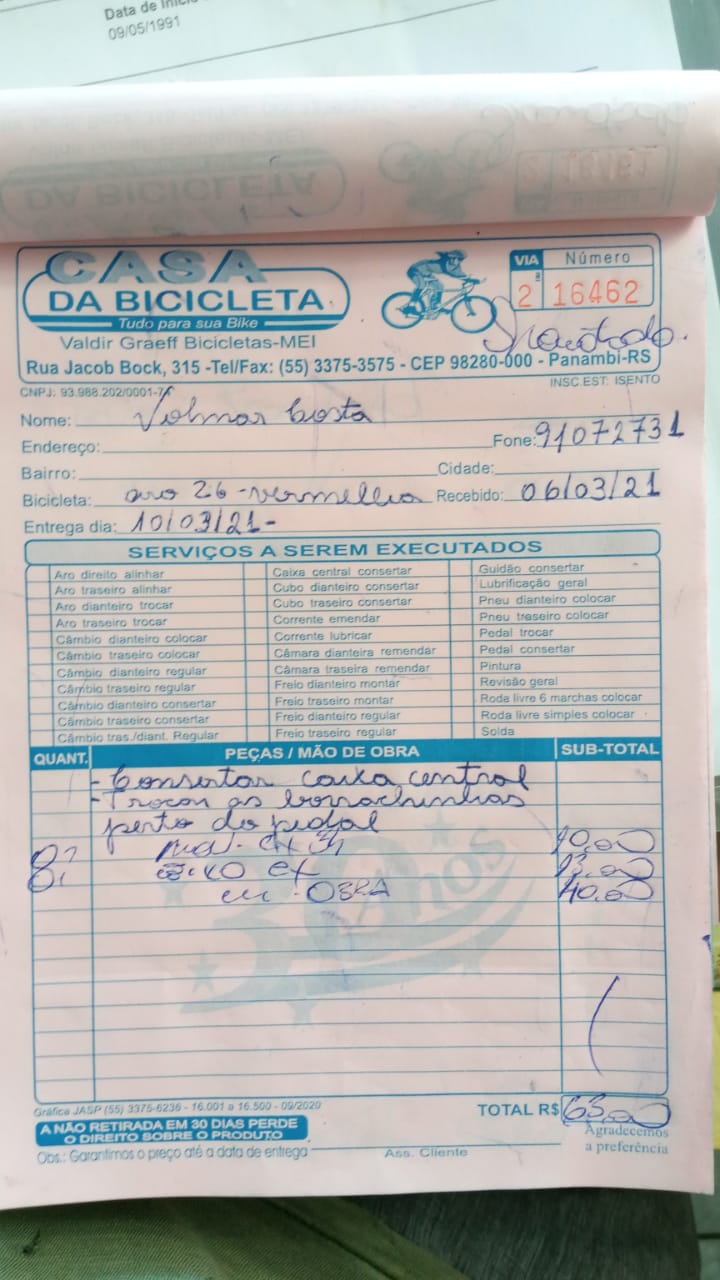 Data de Iníc
09/05/1991
DA BICICLETA
CASA
DA BICICLETA
Tudo para sua Bike
Valdir Graeff Bicicletas-MEI
VIA Número
2ª 16462
Rua Jacob Bock, 315 -Tel/Fax: (55) 3375-3575 - CEP 98280-000 - Panambi-RS
CNPJ: 93.988.202/0001-7 INSC.EST: ISENTO
Nome: Volmar Costa
Endereço: Fone: 91072731
Bairro: Cidade:
Bicicleta: aro 26 -vermelha Recebido: 06/03/21
Entrega dia: 10/03/21-
SERVIÇOS A SEREM EXECUTADOS
Aro direito alinhar Caixa central consertar Guidão consertar
Aro traseiro alinhar Cubo dianteiro consertar Lubrificação geral
Aro dianteiro trocar Cubo traseiro consertar Pneu dianteiro colocar
Aro traseiro trocar Corrente emendar Pneu traseiro colocar
Câmbio dianteiro colocar Corrente lubricar Pedal trocar
Câmbio traseiro colocar Câmara dianteira remendar Pedal consertar
Câmbio dianteiro regular Câmara traseira remendar Pintura
Câmbio traseiro regular Freio dianteiro montar Revisão geral
Câmbio dianteiro consertar Freio traseiro montar Roda livre 6 marchas colocar
Câmbio traseiro consertar Freio dianteiro regular Roda livre simples colocar
Câmbio tras./diant. Regular Freio traseiro regular Solda
QUANT. PEÇAS / MÃO DE OBRA SUB-TOTAL
- Consertar caixa central
- Trocar as borrachinhas
perto do pedal
10,00
13,00
OBRA 40,00
30 Anos
Gráfica JASP (55) 3375-6236 - 16.001 a 16.500 - 09/2020
TOTAL R$ 63,00
A NÃO RETIRADA EM 30 DIAS PERDE
O DIREITO SOBRE O PRODUTO
Agradecemos
a preferência
Obs.: Garantimos o preço até a data de entrega Ass. Cliente